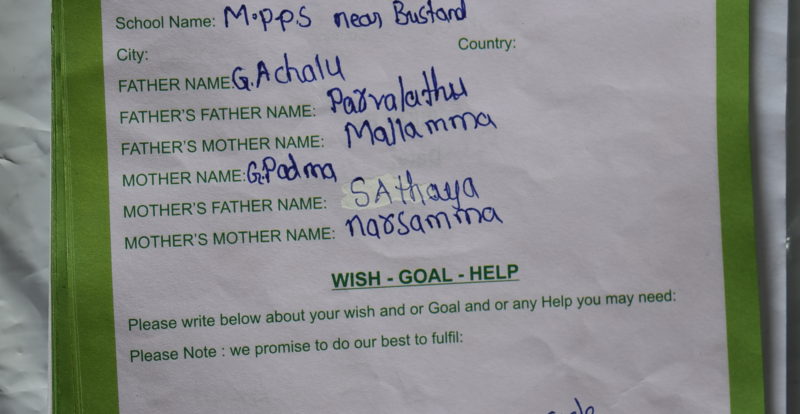 School Name: M.P.P.S near Bustand
City: Country:
FATHER NAME: G.Achalu
FATHER'S FATHER NAME: Parvalathu
FATHER'S MOTHER NAME: Mallamma
MOTHER NAME: G.Padma
MOTHER'S FATHER NAME: SAthaya
MOTHER'S MOTHER NAME: narsamma
WISH - GOAL - HELP
Please write below about your wish and or Goal and or any Help you may need:
Please Note : we promise to do our best to fulfil: